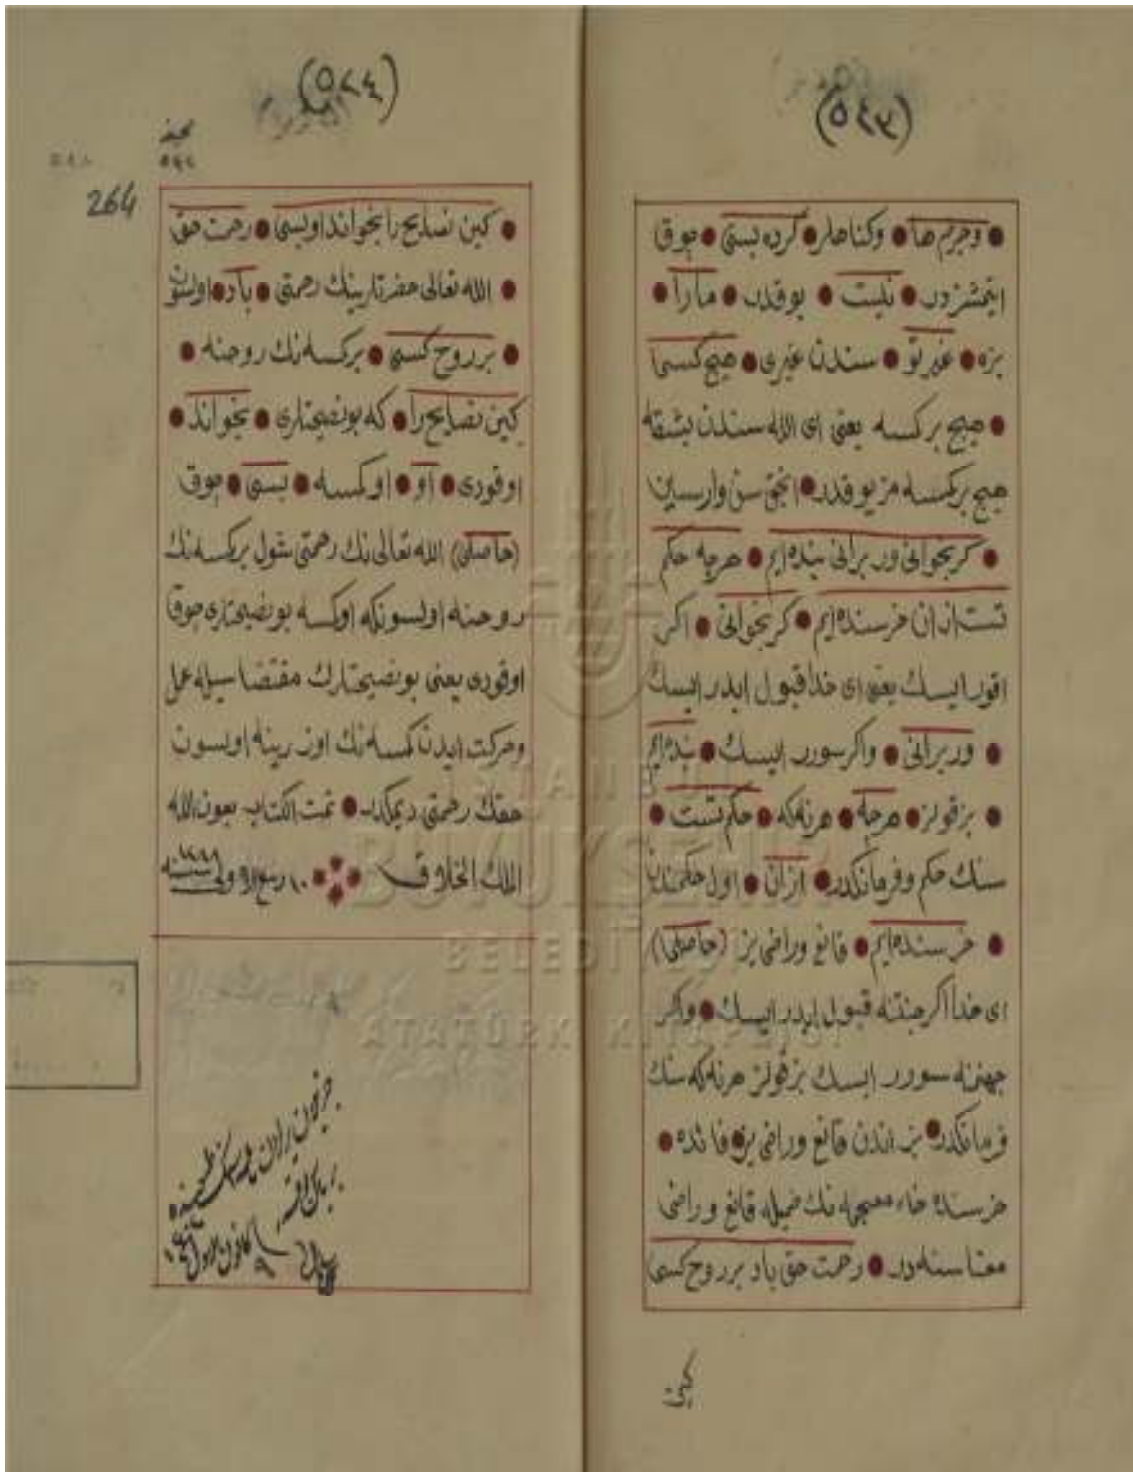 (٥٢٣)
● وجرم ها ● وكناهلر ● كرده بسى ● چوق
ايتمشزدر ● نيست ● يوقدر ● مارا ●
بزه ● غير تو ● سندن غيرى ● هيچ كسى
● هيچ بر كسه يعنى اى الله سندن بشقه
هيچ بر كمسه مز يوقدر ● انجق سن وارسين
● كر بخوانى ور برانى بنده ايم ● هرچه حكم
تست ازان خرسنده ايم ● كر بخوانى ● اكر
اقور ايسك يعنى اى خدا قبول ايدر ايسك
● ور برانى ● واكر سورر ايسك ● بنده ايم
● بز قولز ● هرچه ● هرنه كه ● حكم تست ●
سنك حكم وفرمانكدر ● ازان ● اول حكمندن
● خرسنده ايم ● قانع وراضى يز (حاصلى)
اى خدا اكر جنتنه قبول ايدر ايسك ● واكر
جهنمه سورر ايسك بز قولز هرنه كه سنك
فرمانكدر ● بز اندن قانع وراضى يز ● فائده ●
خرسنده خاء معجمه نك ضميله قانع وراضى
معناسنه در ● رحمت حق باد بر روح كسى
كين
(٥٢٤)
264
● كين نصايح را بخواند او بسى ● رحمت حق
● الله تعالى حضرتلرينك رحمتى ● باد ● اولسون
● بر روح كسى ● بر كسه نك روحنه ●
كين نصايح را ● كه بو نصيحتلرى ● بخواند ●
اوقودى ● او ● او كمسه ● بسى ● چوق
(حاصلى) الله تعالى نك رحمتى شول بر كسه نك
روحنه اولسونكه او كسه بو نصيحتلرى چوق
اوقودى يعنى بو نصيحتلرك مقتضاسيله عمل
وحركت ايدن كمسه نك اوزرينه اولسون
حقك رحمتى ديمكدر ● تمت الكتاب بعون الله
الملك الخلاق ١٠ ربيع الاولى سنه